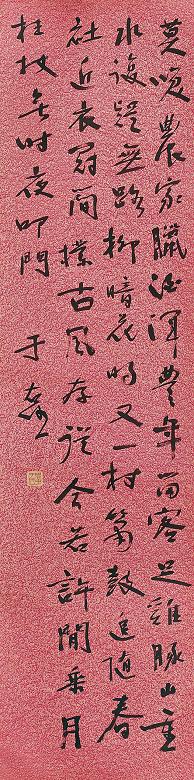 莫咲農家臘酒渾豐年留客足雞豚山重
水複疑無路柳暗花明又一村簫鼓追隨春
社近衣冠簡樸古風存從今若許閒乘月
拄杖無時夜叩門 于